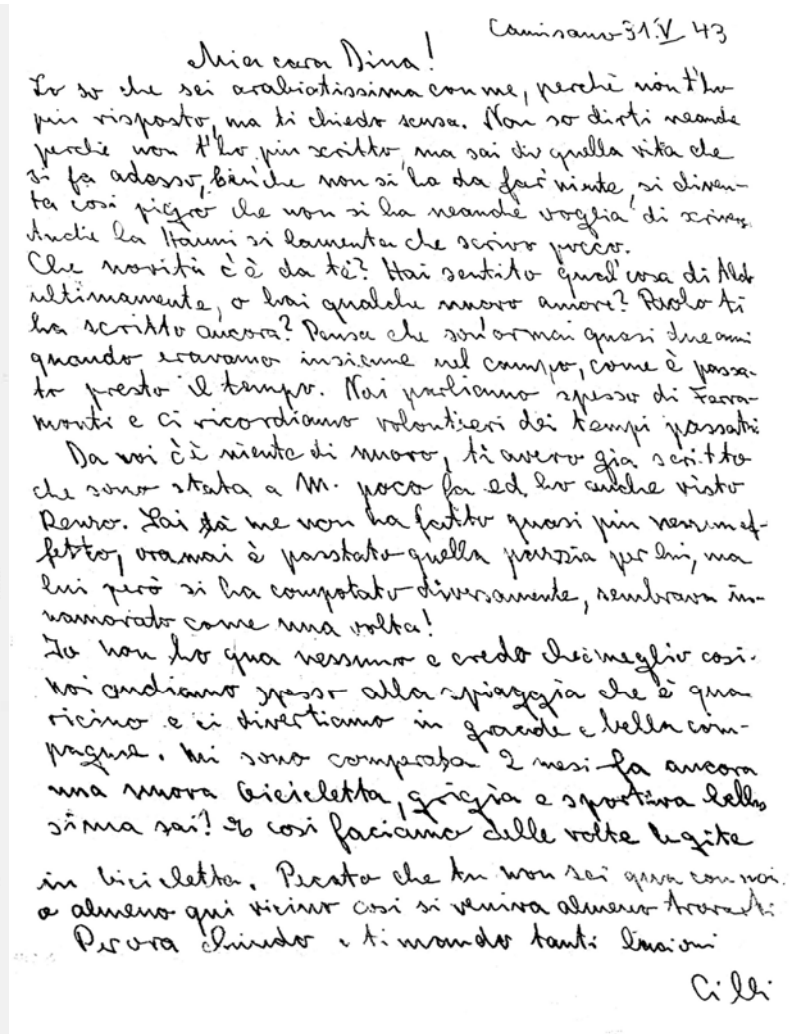 Camisano 31.V 43
Mia cara Dina!
Io so che sei arabiatissima con me, perchè non t'ho
più risposto, ma ti chiedo scusa. Non so dirti neanche
perchè non t'ho più scritto, ma sai di quella vita che
si fa adesso, benchè non si ha da far niente si diven-
ta così pigro che non si ha neanche voglia di scrivere.
Anche la Hanni si lamenta che scrivo poco.
Che novità c'è da tè? Hai sentito qual'cosa di Aldo
ultimamente, o hai qualche nuovo amore? Paolo ti
ha scritto ancora? Pensa che son'ormai quasi due anni
quando eravamo insieme nel campo, come è passa-
to presto il tempo. Noi parliamo spesso di Ferra-
monti e ci ricordiamo volontieri dei tempi passati.
Da noi c'è niente di nuovo, ti avevo già scritto
che sono stata a M. poco fa ed ho anche visto
Renzo. Sai a me non ha fatto quasi più nessun ef-
fetto, oramai è passtato quella pazzia per lui, ma
lui però si ha compotato diversamente, sembrava in-
namorato come una volta!
Io non ho qua nessuno e credo che meglio così.
Noi andiamo spesso alla spiaggia che è qua
vicino e ci divertiamo in grande e bella com-
pagnia. Mi sono comperata 2 mesi fa ancora
una nuova bicicletta, grigia e sportiva bellis
sima sai! E così faciamo delle volte le gite
in bicicletta. Pecato che tu non sei qua con noi.
o almeno qui vicino così si veniva almeno trovarti
Per ora chiudo e ti mando tanti bacioni
Cilli